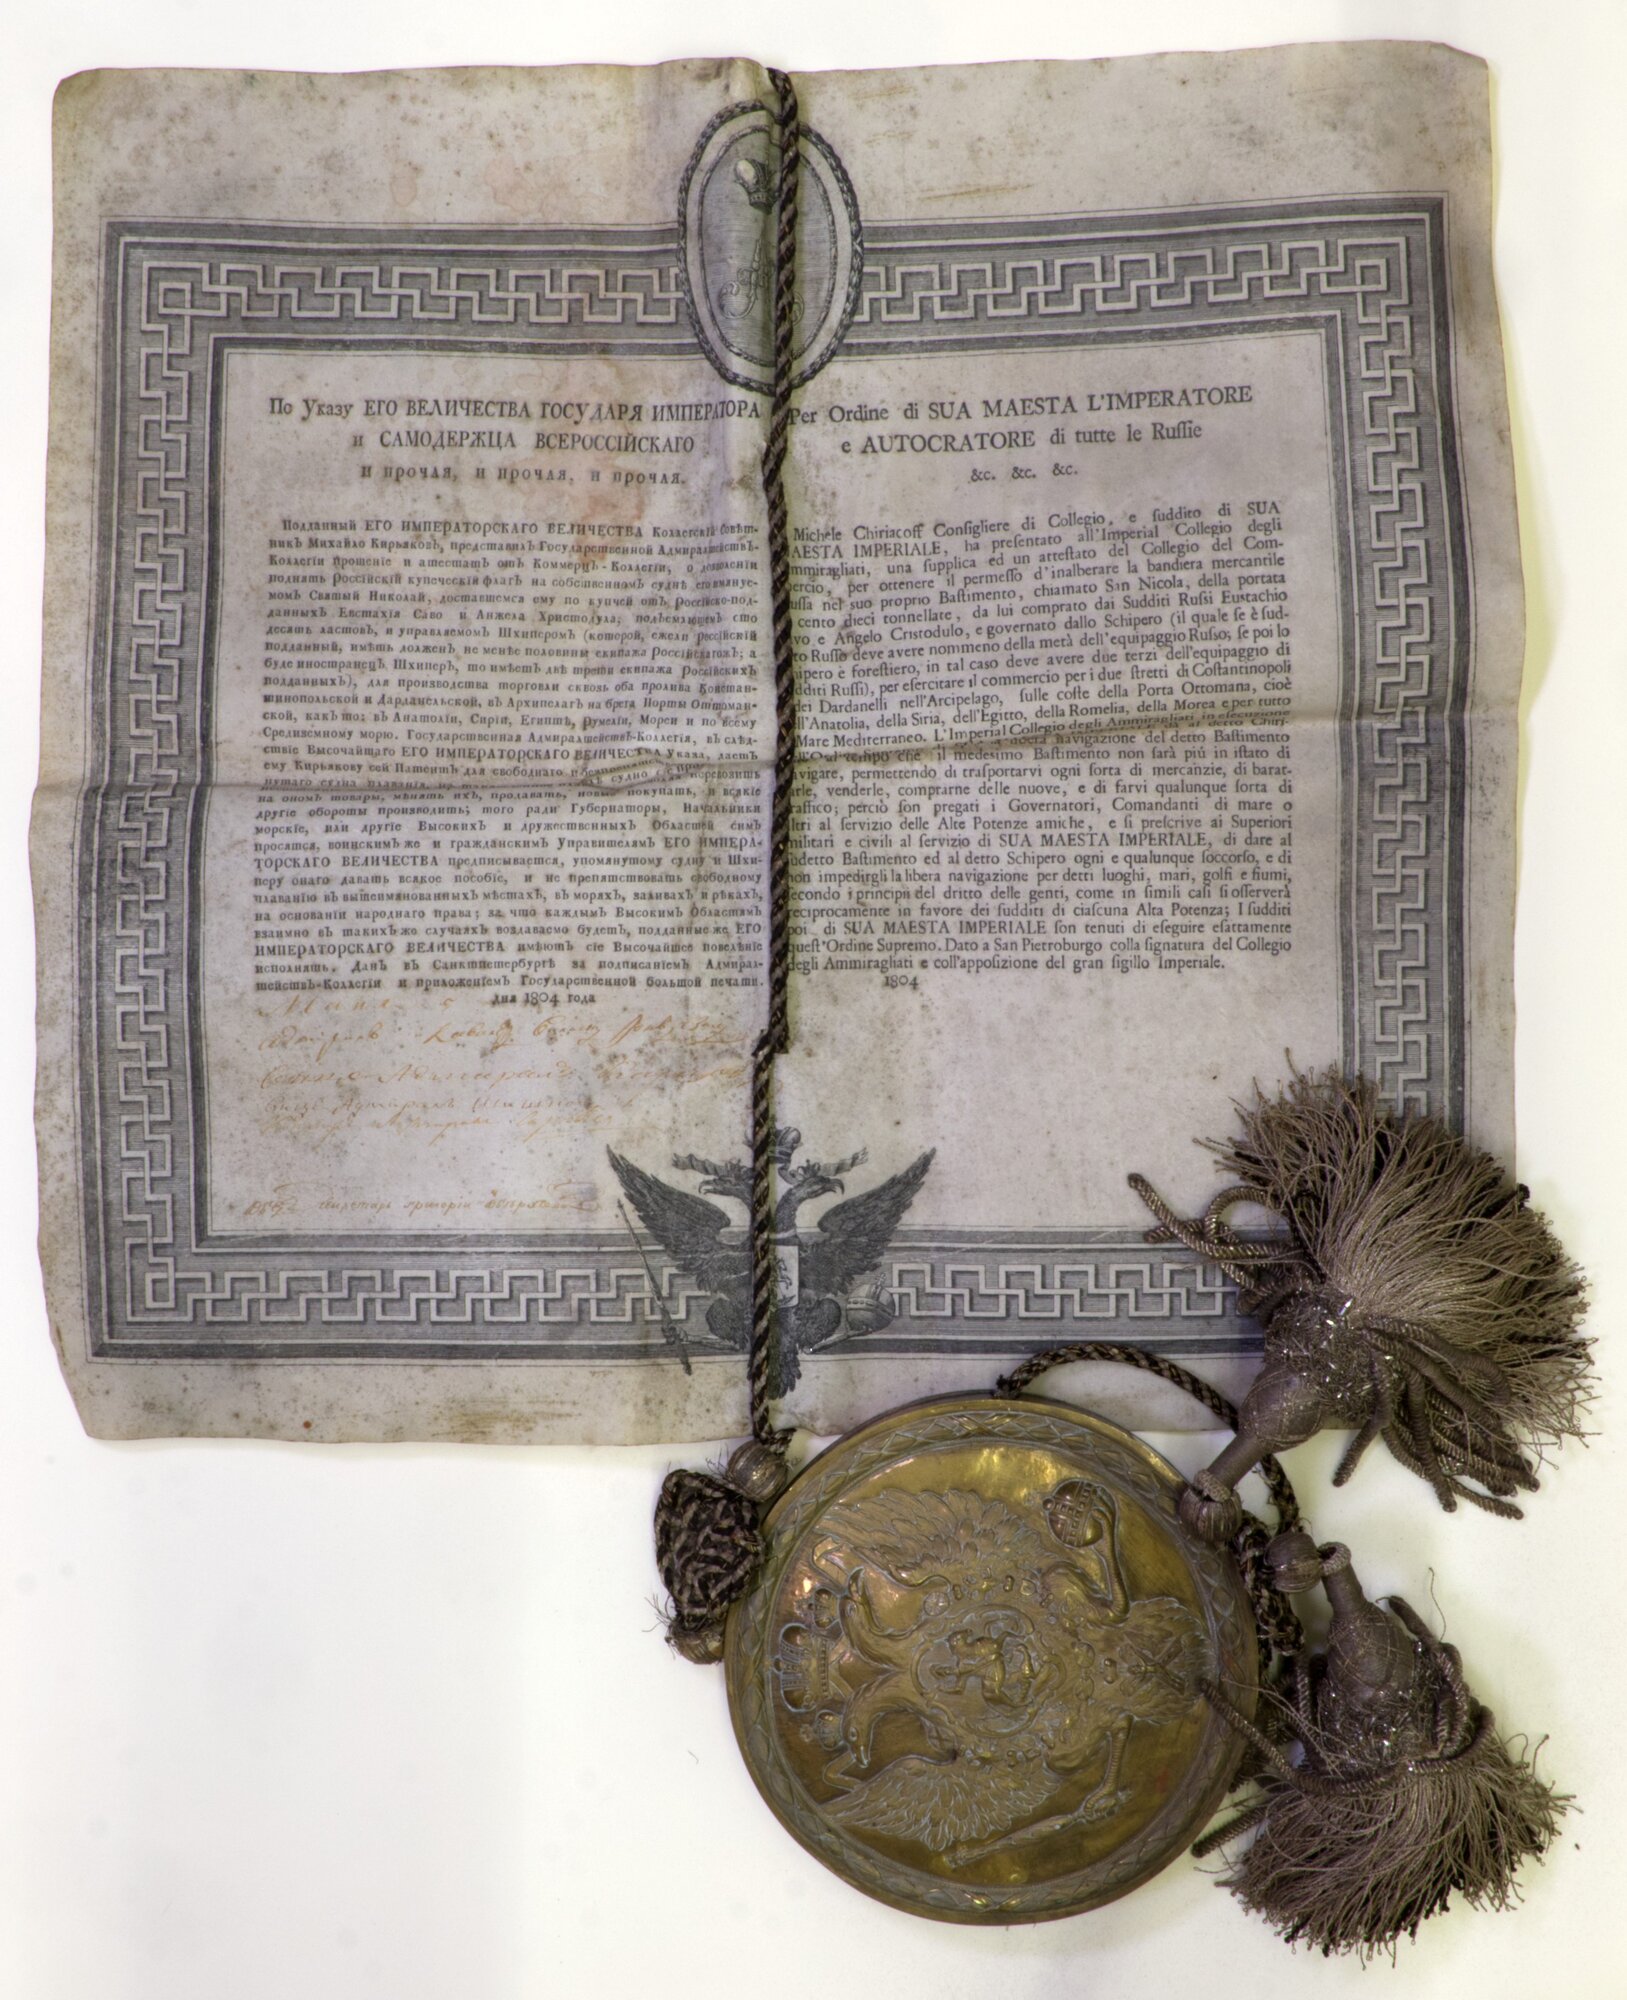 По Указу ЕГО ВЕЛИЧЕСТВА ГОСУДАРЯ ИМПЕРАТОРА
и САМОДЕРЖЦА ВСЕРОССІЙСКАГО
и прочая, и прочая, и прочая.
Подданный ЕГО ИМПЕРАТОРСКАГО ВЕЛИЧЕСТВА Коллегскій Совѣт-
никъ Михайло Кирьяковъ, представилъ Государственной Адмиралтействъ-
Коллегіи прошеніе и аттестатъ отъ Коммерцъ-Коллегіи, о дозволеніи
поднять Россійскій купеческій флагъ на собственномъ суднѣ его имянуе-
момъ Святый Николай, доставшемся ему по купчей отъ Россійско-под-
данныхъ Евстахія Саво и Анжела Христодула; подъемлющемъ сто
десять ластовъ, и управляемомъ Шхиперомъ (которой, ежели россійскій
подданный, имѣть долженъ не менѣе половины екипажа Россійскагожъ; а
буде иностранецъ Шхиперъ, то имѣетъ двѣ трети екипажа Россійскихъ
подданныхъ), для производства торговли сквозь оба пролива Констан-
тинопольской и Дарданельской, въ Архипелагъ на брега Порты Оттоман-
ской, какъ то: въ Анатоліи, Сиріи, Египтѣ, Румеліи, Мореи и по всему
Средиземному морю. Государственная Адмиралтействъ-Коллегія, въ слѣд-
ствіе Высочайшаго ЕГО ИМПЕРАТОРСКАГО ВЕЛИЧЕСТВА Указа, даетъ
ему Кирьякову сей Патентъ для свободнаго
на ономъ товары, мѣнять ихъ, продавать, новые покупать, и всякіе
другіе обороты производить; того ради Губернаторы, Начальники
морскіе, или другіе Высокихъ и дружественныхъ Областей симъ
просятся, воинскимъ же и гражданскимъ Управителямъ ЕГО ИМПЕРА-
ТОРСКАГО ВЕЛИЧЕСТВА предписывается, упомянутому судну и Шхи-
перу онаго давать всякое пособіе, и не препятствовать свободному
плаванію въ вышеимянованныхъ мѣстахъ, въ моряхъ, заливахъ и рѣкахъ,
на основаніи народнаго права; за что каждымъ Высокимъ Областямъ
взаимно въ такихъ же случаяхъ воздаваемо будетъ, подданные же ЕГО
ИМПЕРАТОРСКАГО ВЕЛИЧЕСТВА имѣютъ сіе Высочайшее повелѣніе
исполнять. Данъ въ Санктпетербургѣ за подписаніемъ Адмирал-
тействъ-Коллегіи и приложеніемъ Государственной большой печати.
Маія 5 дня 1804 года
Per Ordine di SUA MAESTA L'IMPERATORE
e AUTOCRATORE di tutte le Russie
&c. &c. &c.
Michele Chiriacoff Consigliere di Collegio, e suddito di SUA
AESTA IMPERIALE, ha presentato all'Imperial Collegio degli
mmiragliati, una supplica ed un attestato del Collegio del Com-
ercio, per ottenere il permesso d'inalberare la bandiera mercantile
ussa nel suo proprio Bastimento, chiamato San Nicola, della portata
cento dieci tonnellate, da lui comprato dai Sudditi Russi Eustachio
vo e Angelo Cristodulo, e governato dallo Schipero (il quale se è sud-
to Russo deve avere nommeno della metà dell'equipaggio Russo; se poi lo
hipero è forestiero, in tal caso deve avere due terzi dell'equipaggio di
dditi Russi), per esercitare il commercio per i due stretti di Costantinopoli
dei Dardanelli nell'Arcipelago, sulle coste della Porta Ottomana, cioè
ll'Anatolia, della Siria, dell'Egitto, della Romelia, della Morea e per tutto
Mare Mediterraneo. L'Imperial Collegio degli Ammiragliati, in esecuzione
navigazione del detto Bastimento
il medesimo Bastimento non sarà più in istato di
avigare, permettendo di trasportarvi ogni sorta di mercanzie, di barat-
arle, venderle, comprarne delle nuove, e di farvi qualunque sorta di
raffico; perciò son pregati i Governatori, Comandanti di mare o
ltri al servizio delle Alte Potenze amiche, e si prescrive ai Superiori
militari e civili al servizio di SUA MAESTA IMPERIALE, di dare al
udetto Bastimento ed al detto Schipero ogni e qualunque soccorso, e di
non impedirgli la libera navigazione per detti luoghi, mari, golfi e fiumi,
econdo i principii del dritto delle genti, come in simili casi si osserverà
reciprocamente in favore dei sudditi di ciascuna Alta Potenza; I sudditi
poi di SUA MAESTA IMPERIALE son tenuti di eseguire esattamente
quest'Ordine Supremo. Dato a San Pietroburgo colla signatura del Collegio
degli Ammiragliati e coll'apposizione del gran sigillo Imperiale.
1804